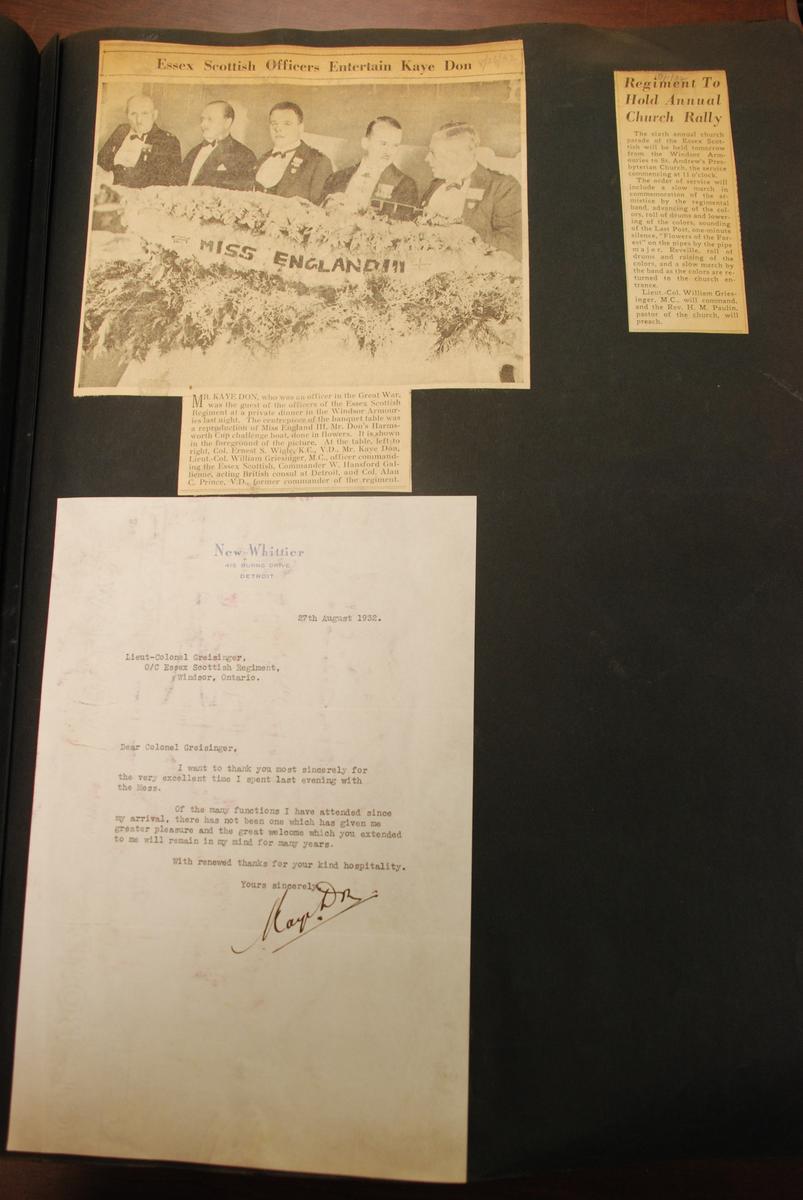 Essex Scottish Officers Entertain Kaye Don
MISS ENGLAND III
MR. KAYE DON, who was an officer in the Great War,
was the guest of the officers of the Essex Scottish
Regiment at a private dinner in the Windsor Armour-
ies last night. The centrepiece of the banquet table was
a reproduction of Miss England III, Mr. Don's Harms-
worth Cup challenge boat, done in flowers. It is shown
in the foreground of the picture. At the table, left to
right, Col. Ernest S. Wigle, K.C., V.D., Mr. Kaye Don,
Lieut.-Col. William Griesinger, M.C., officer command-
ing the Essex Scottish, Commander W. Hansford Gal-
lienne, acting British consul at Detroit, and Col. Alan
C. Prince, V.D., former commander of the regiment.
Regiment To
Hold Annual
Church Rally
The sixth annual church
parade of the Essex Scot-
tish will be held tomorrow
from the Windsor Arm-
ouries to St. Andrew's Pres-
byterian Church, the service
commencing at 11 o'clock.
The order of service will
include a slow march in
commemoration of the ar-
mistice by the regimental
band, advancing of the col-
ors, roll of drums and lower-
ing of the colors, sounding
of the Last Post, one-minute
silence, "Flowers of the For-
est" on the pipes by the pipe
major, Reveille, roll of
drums and raising of the
colors, and a slow march by
the band as the colors are re-
turned to the church en-
trance.
Lieut.-Col. William Gries-
inger, M.C., will command,
and the Rev. H. M. Paulin,
pastor of the church, will
preach.
New Whittier
415 BURNS DRIVE
DETROIT
27th August 1932.
Lieut-Colonel Greisinger,
O/C Essex Scottish Regiment,
Windsor, Ontario.
Dear Colonel Greisinger,
I want to thank you most sincerely for
the very excellent time I spent last evening with
the Mess.
Of the many functions I have attended since
my arrival, there has not been one which has given me
greater pleasure and the great welcome which you extended
to me will remain in my mind for many years.
With renewed thanks for your kind hospitality.
Yours sincerely,
Kaye Don